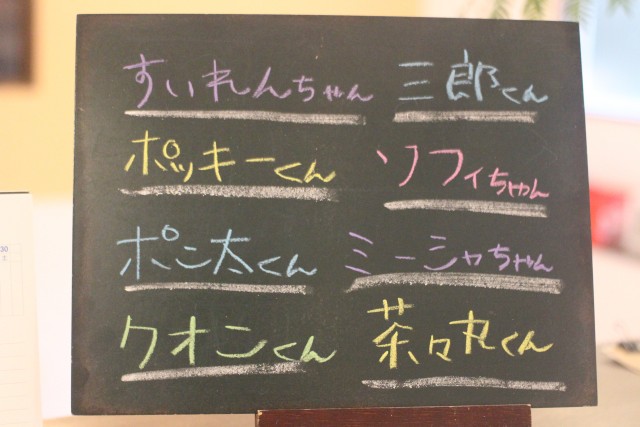 すいれんちゃん 三郎くん
ポッキーくん ソフィちゃん
ポン太くん ミーシャちゃん
クオンくん 茶々丸くん
30